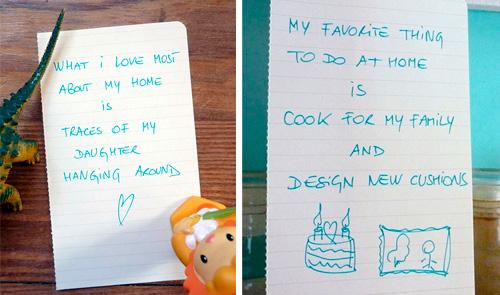 WHAT i LOVE MOST
ABOUT MY HOME
iS
TRACES OF MY
DAUGHTER
HANGING AROUND
MY FAVORITE THING
TO DO AT HOME
iS
COOK FOR MY FAMILY
AND
DESIGN NEW CUSHIONS